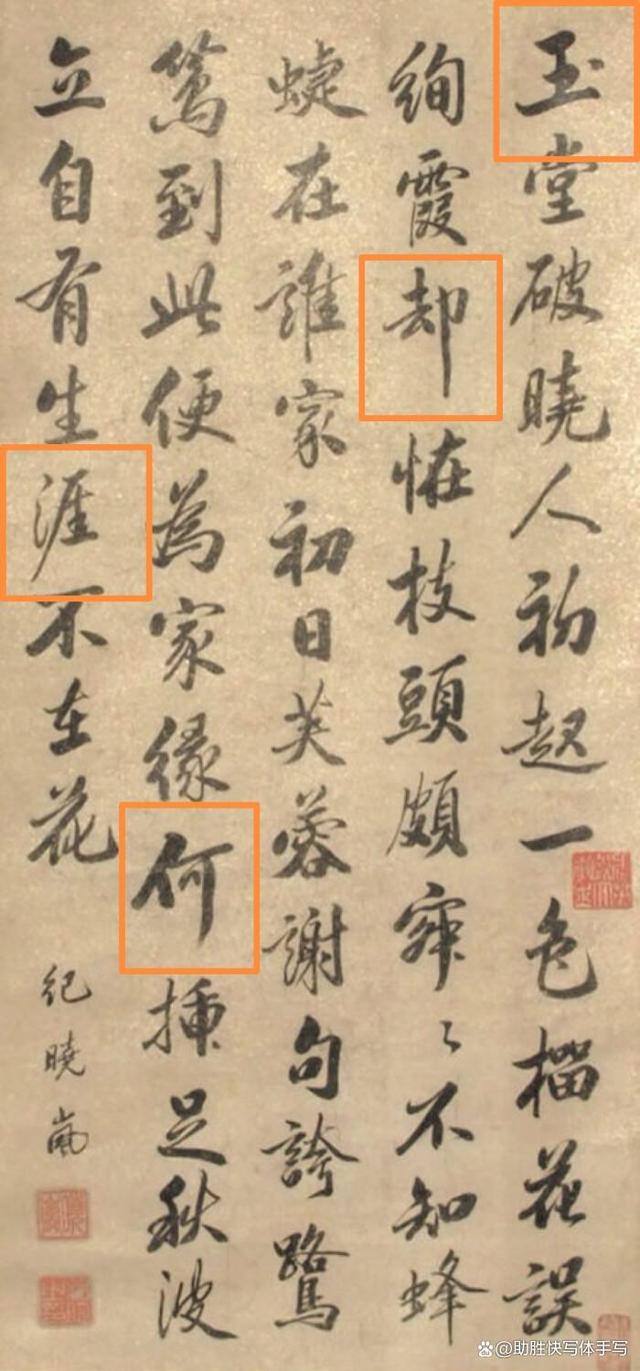 玉堂破曉人初起一色榴花誤
絢霞却恠枝頭頗寂〻不知蜂
蜨在誰家初日芙蓉謝句誇鷺
到此便為家緣何插足秋波
立自有生涯不在花
紀曉嵐
@助胜快写体手写